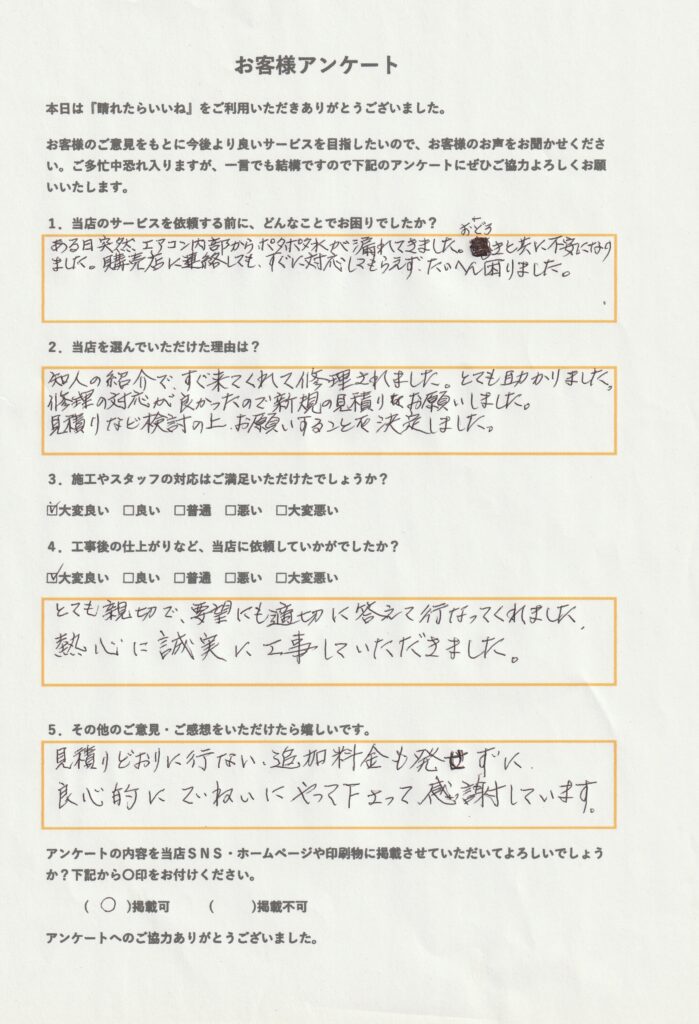 お客様アンケート
本日は『晴れたらいいね』をご利用いただきありがとうございました。
お客様のご意見をもとに今後より良いサービスを目指したいので、お客様のお声をお聞かせくださ
い。ご多忙中恐れ入りますが、一言でも結構ですので下記のアンケートにぜひご協力よろしくお願
いいたします。
1．当店のサービスを依頼する前に、どんなことでお困りでしたか？
おどろ
ある日突然、エアコン内部からポタポタ水が漏れてきました。きと共に不安になり
ました。購売店に連絡しても、すぐに対応してもらえず、たいへん困りました。
2．当店を選んでいただけた理由は？
知人の紹介で、すぐ来てくれて修理されました。とても助かりました。
修理の対応が良かったので新規の見積りをお願いしました。
見積りなど検討の上、お願いすることを決定しました。
3．施工やスタッフの対応はご満足いただけたでしょうか？
☑大変良い □良い □普通 □悪い □大変悪い
4．工事後の仕上がりなど、当店に依頼していかがでしたか？
☑大変良い □良い □普通 □悪い □大変悪い
とても親切で、要望にも適切に答えて行なってくれました。
熱心に誠実に工事していただきました。
5．その他のご意見・ご感想をいただけたら嬉しいです。
見積りどおりに行ない、追加料金も発せずに、
良心的にていねいにやって下さって感謝しています。
アンケートの内容を当店SNS・ホームページや印刷物に掲載させていただいてよろしいでしょう
か？下記から〇印をお付けください。
（ 〇 ）掲載可 （ ）掲載不可
アンケートへのご協力ありがとうございました。